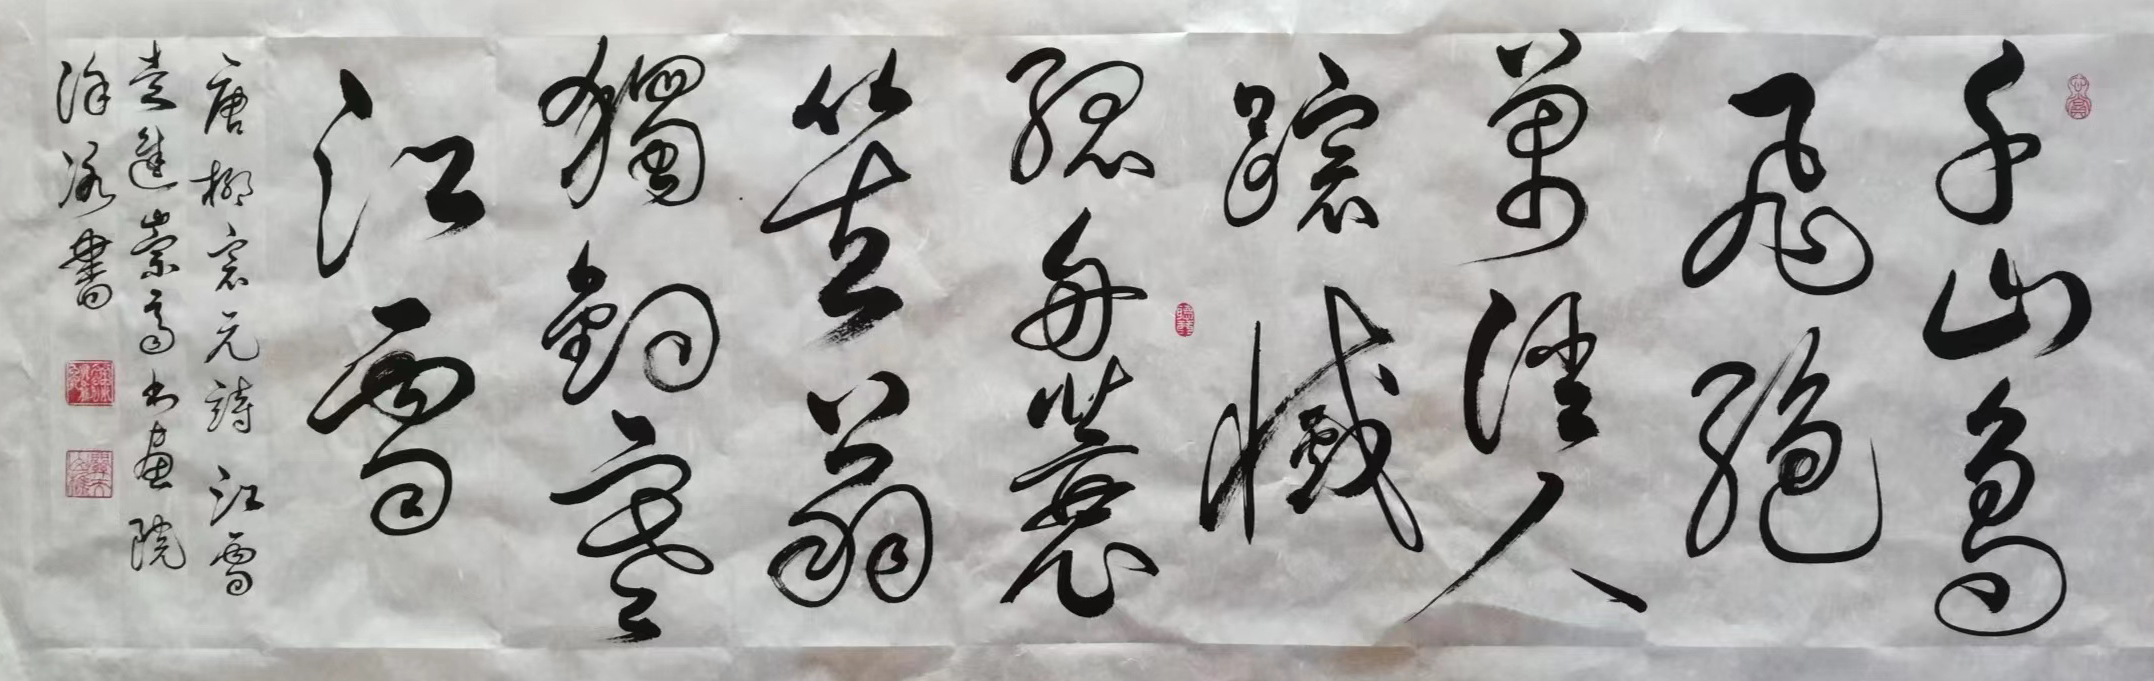 千山鳥
飛絕
萬徑人
蹤滅
孤舟蓑
笠翁
獨釣寒
江雪
唐柳宗元詩江雪
走進崇高書畫院
徐泳書